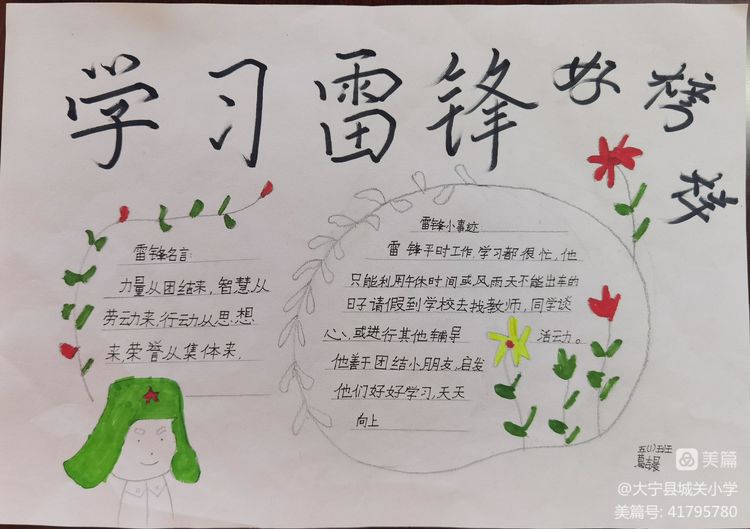 学习雷锋好榜
样
雷锋名言:
力量从团结来,智慧从
劳动来,行动从思想
来,荣誉从集体来,
雷锋小事迹
雷锋平时工作,学习都很忙,他
只能利用午休时间或风雨天不能出车的
日子请假到学校去找教师,同学谈
心,或进行其他辅导活动。
他善于团结小朋友,启发
他们好好学习,天天
向上
五(1)班
美篇
@大宁县城关小学
美篇号: 41795780